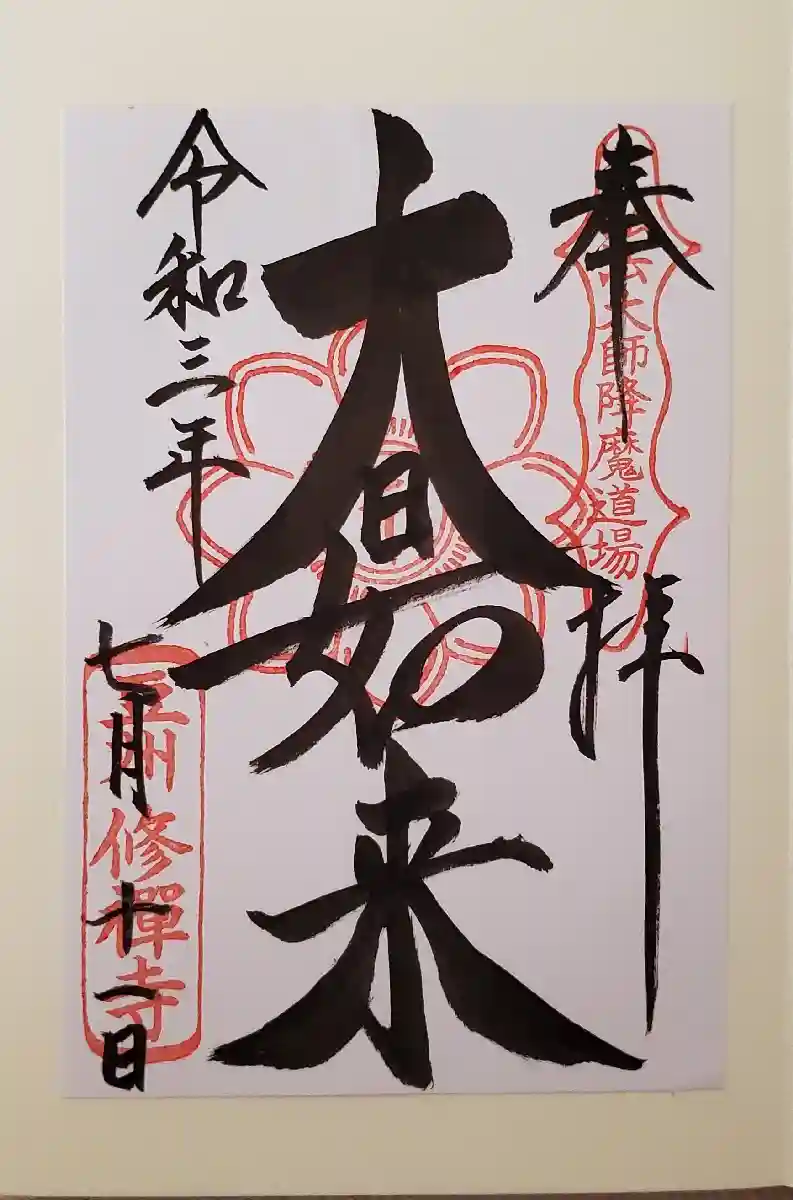 奉拝
弘法大師降魔道場
大日如来
令和三年
七月十一日
豆州修禪寺